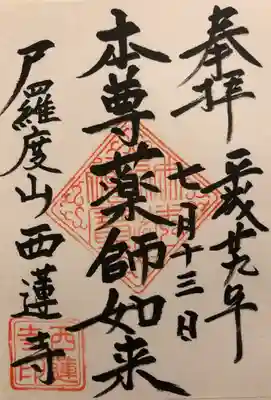 奉拝
平成廿九年
七月十三日
本尊薬師如来
尸羅度山西蓮寺
西蓮
寺印